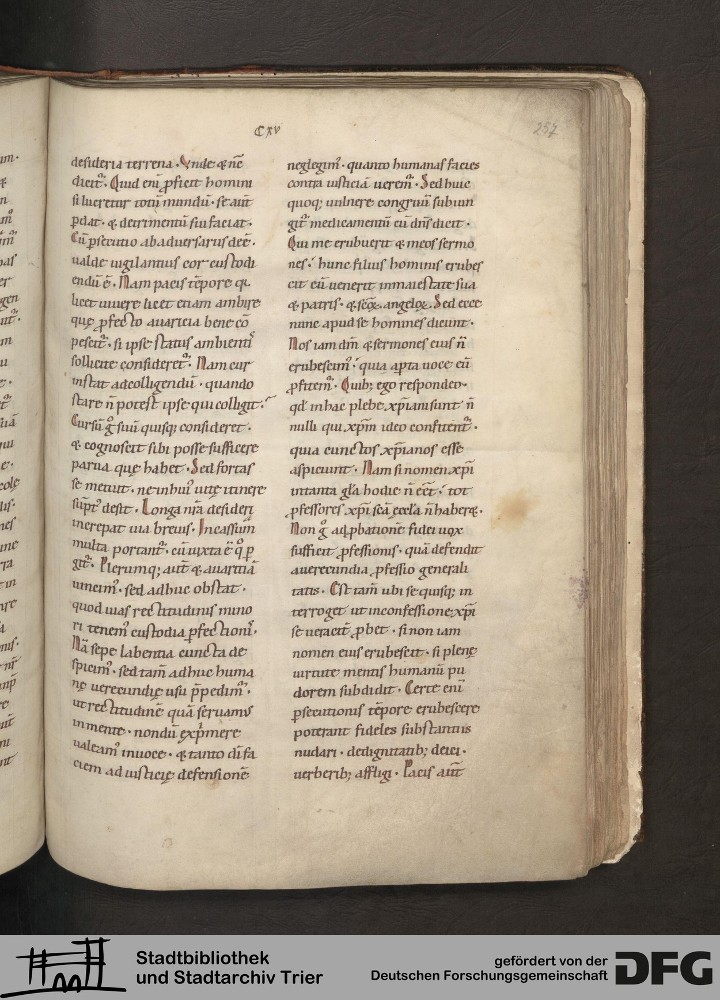 CXV
257
desideria terrena. Unde & nc̄
dicit̄. Quid eni ꝓficit homini
si lucretur totū mundū. se aut̄
ꝑdat. & detrimentū sui faciat.
Cū ꝑsecutio ab aduersariis deē.
ualde uigilantius cor custodi
endū ē. Nam pacis tēpore qi
licet uiuere licet etiam ambire
quę ꝓfecto auaricia bene cō
pescit̄. si ipse status ambientis
sollicite consideret̄. Nam cur
instat ad colligendū. quando
stare n̄ potest ipse qui colligit.
Cursū g̊ suū quisq; consideret.
& cognoscit sibi posse sufficere
parua quę habet. Sed fortas
se metuit. ne in hui᾽ uitę itinere
sūpt᾽ desit. Longa nr̄a desideri
increpat uia breuis. Incassum
multa portant᾽. cū iuxta ē q̊ ꝑ
git᾽. Plerumq; aut̄ & auaritiā
uincim᾽. sed adhuc obstat.
quod uias rectitudinis mino
ri tenem᾽ custodia ꝑfectionis.
Nā sepe labentia cuncta de
spicim᾽. sed tam̄ adhuc huma
nę uerecundię usu p̄pedim᾽.
ut rectitudinē quā seruamus
in mente. nondū exp̄mere
ualeam᾽ in uoce. & tanto dī fa
ciem ad iusticię defensionē
neglegim᾽. quanto humanas facies
contra iusticiā uerem᾽. Sed huic
quoq; uulnere congruū subiun
git᾽ medicamentū cū dn̄s dicit.
Qui me erubuerit & meos sermo
nes. hunc filius hominis erubes
cit cū uenerit in maiestate sua
& patris. & sc̄oꝝ angeloꝝ. Sed ecce
nunc apud se homines dicunt.
Nos iam dn̄m & sermones eius n̄
erubescim᾽. quia aꝑta uoce eū
ꝓfitem᾽. Quib; ego respondeo.
qd̄ in hac plebe xp̄iani sunt n̄
nulli qui xp̄m ideo confitent᾽.
quia cunctos xp̄ianos esse
aspiciunt. Nam si nomen xp̄i
in tanta gl̄a hodie n̄ eēt. tot
ꝓfessores xp̄i sc̄a ęccl̄a n̄ haber&.
Non g̊ ad ꝓbationē fidei uox
sufficit ꝓfessionis. quā defendit
a uerecundia ꝓfessio generali
tatis. Est tam̄ ubi se quisq; in
terroget ut in confessione xp̄i
se ueracit̄ ꝓbet. si non iam
nomen eius erubescit. si plenę
uirtute mentis humanū pu
dorem subdidit. Certe eni
ꝑsecutionis tēpore erubescere
poterant fideles substantiis
nudari. de dignitatib; deici.
uerberib; affligi. Pacis aut̄
Stadtbibliothek
und Stadtarchiv Trier
gefördert von der
Deutschen Forschungsgemeinschaft
DFG